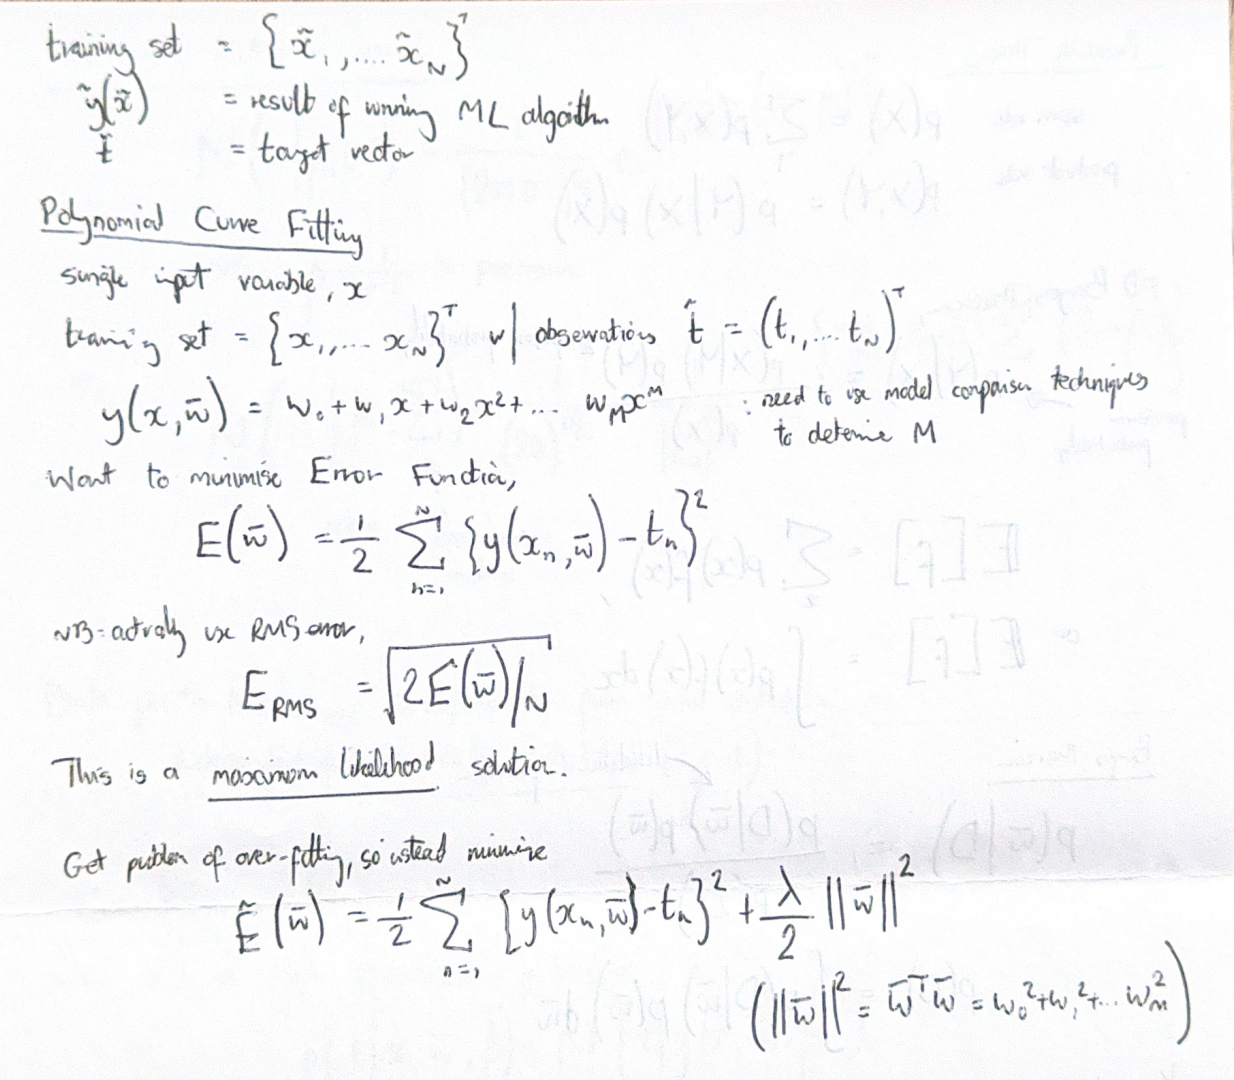 training set = {x̃₁,.... x̃_N}ᵀ
ỹ(x̃) = result of running ML algorithm
t̃ = target vector
Polynomial Curve Fitting
single input variable, x
training set = {x₁,... x_N}ᵀ w/ observations t̂ = (t₁,... t_N)ᵀ
y(x, w̄) = w₀ + w₁x + w₂x² + ... w_M x^M : need to use model comparison techniques
to determine M
Want to minimise Error Function,
E(w̄) = 1/2 Σ_{n=1}^{N} {y(x_n, w̄) - t_n}²
NB - actually use RMS error,
E_RMS = √(2E(w̄)/N)
This is a maximum likelihood solution.
Get problem of over-fitting, so instead minimise
Ẽ(w̄) = 1/2 Σ_{n=1}^{N} {y(x_n, w̄) - t_n}² + λ/2 ||w̄||²
(||w̄||² = w̄ᵀw̄ = w₀² + w₁² + ... w_M²)